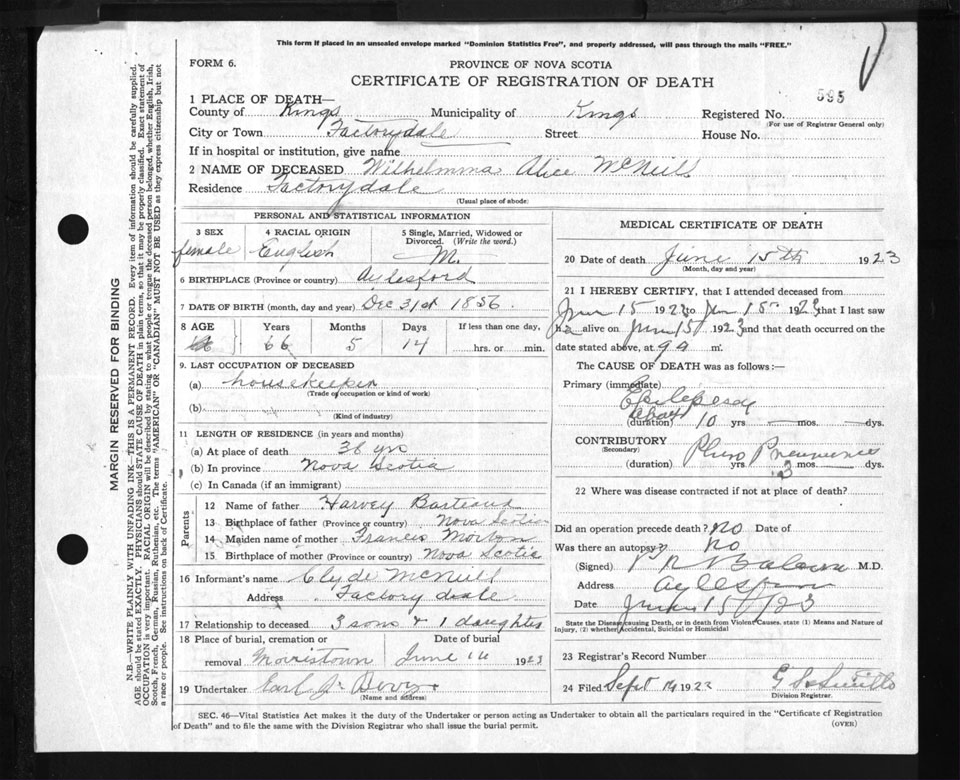 This form if placed in an unsealed envelope marked "Dominion Statistics Free", and properly addressed, will pass through the mails "FREE."
FORM 6.
PROVINCE OF NOVA SCOTIA
CERTIFICATE OF REGISTRATION OF DEATH
595
1 PLACE OF DEATH—
County of Kings Municipality of Kings Registered No.
(For use of Registrar General only)
City or Town Factorydale Street House No.
If in hospital or institution, give name
2 NAME OF DECEASED Wilhelmma Alice McNeill
Residence Factorydale
(Usual place of abode)
PERSONAL AND STATISTICAL INFORMATION
3 SEX 4 RACIAL ORIGIN 5 Single, Married, Widowed or Divorced. (Write the word.)
female English M.
6 BIRTHPLACE (Province or country) Aylesford
7 DATE OF BIRTH (month, day and year) Dec 31st 1856
8 AGE Years Months Days If less than one day,
66 5 14 hrs. or min.
9. LAST OCCUPATION OF DECEASED
(a) housekeeper
(Trade or occupation or kind of work)
(b)
(Kind of industry)
11 LENGTH OF RESIDENCE (in years and months)
(a) At place of death 36 yrs
(b) In province Nova Scotia
(c) In Canada (if an immigrant)
Parents
12 Name of father Harvey Barteaux
13 Birthplace of father (Province or country) Nova Scotia
14 Maiden name of mother Francis Morton
15 Birthplace of mother (Province or country) Nova Scotia
16 Informant's name Clyde McNeill
Address Factorydale
17 Relationship to deceased 3 sons & 1 daughter
18 Place of burial, cremation or removal Morristown Date of burial June 1923
19 Undertaker Earl J.
(Name and address)
MEDICAL CERTIFICATE OF DEATH
20 Date of death June 15th 1923
(Month, day and year)
21 I HEREBY CERTIFY, that I attended deceased from
June 15 1923 to June 15 1923 that I last saw
her alive on June 15 1923 and that death occurred on
date stated above, at 9 a m.
The CAUSE OF DEATH was as follows:—
Primary (immediate)
Epilepsy
about
(duration) 10 yrs mos. dys.
CONTRIBUTORY
(Secondary) Pleuro Pneumonia
(duration) yrs 3 mos. dys.
22 Where was disease contracted if not at place of death?
Did an operation precede death? No Date of
Was there an autopsy? No
(Signed) M.D.
Address Aylesford
Date June 15/23
State the Disease causing Death, or in death from Violent Causes, state (1) Means and Nature of Injury, (2) whether Accidental, Suicidal or Homicidal
23 Registrar's Record Number
24 Filed Sept 1923
Division Registrar.
SEC. 46—Vital Statistics Act makes it the duty of the Undertaker or person acting as Undertaker to obtain all the particulars required in the "Certificate of Registration of Death" and to file the same with the Division Registrar who shall issue the burial permit.
(OVER)
MARGIN RESERVED FOR BINDING
N.B.—WRITE PLAINLY WITH UNFADING INK—THIS IS A PERMANENT RECORD. Every item of information should be carefully supplied.
AGE should be stated EXACTLY. PHYSICIANS should STATE CAUSE OF DEATH in plain terms, so that it may be properly classified. Exact statement of
OCCUPATION is very important. RACIAL ORIGIN will be described by stating to what people or tongue the deceased person belonged, whether English, Irish,
Scotch, French, German, Russian, Ruthenian, etc. The terms "AMERICAN" OR "CANADIAN" MUST NOT BE USED as they express citizenship but not
a race or people. See instructions on back of Certificate.